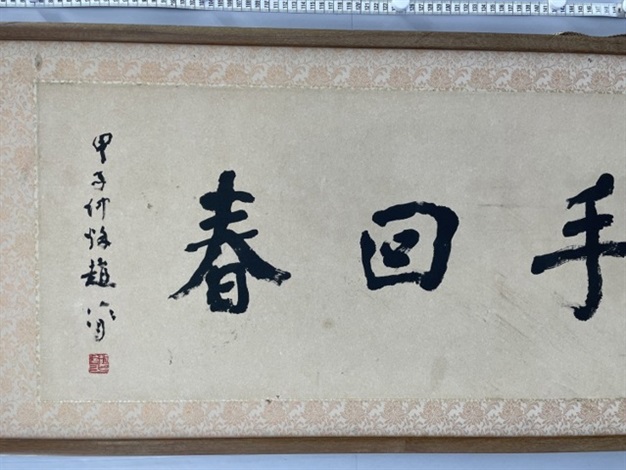 手回春
甲子仲秋趙冷月